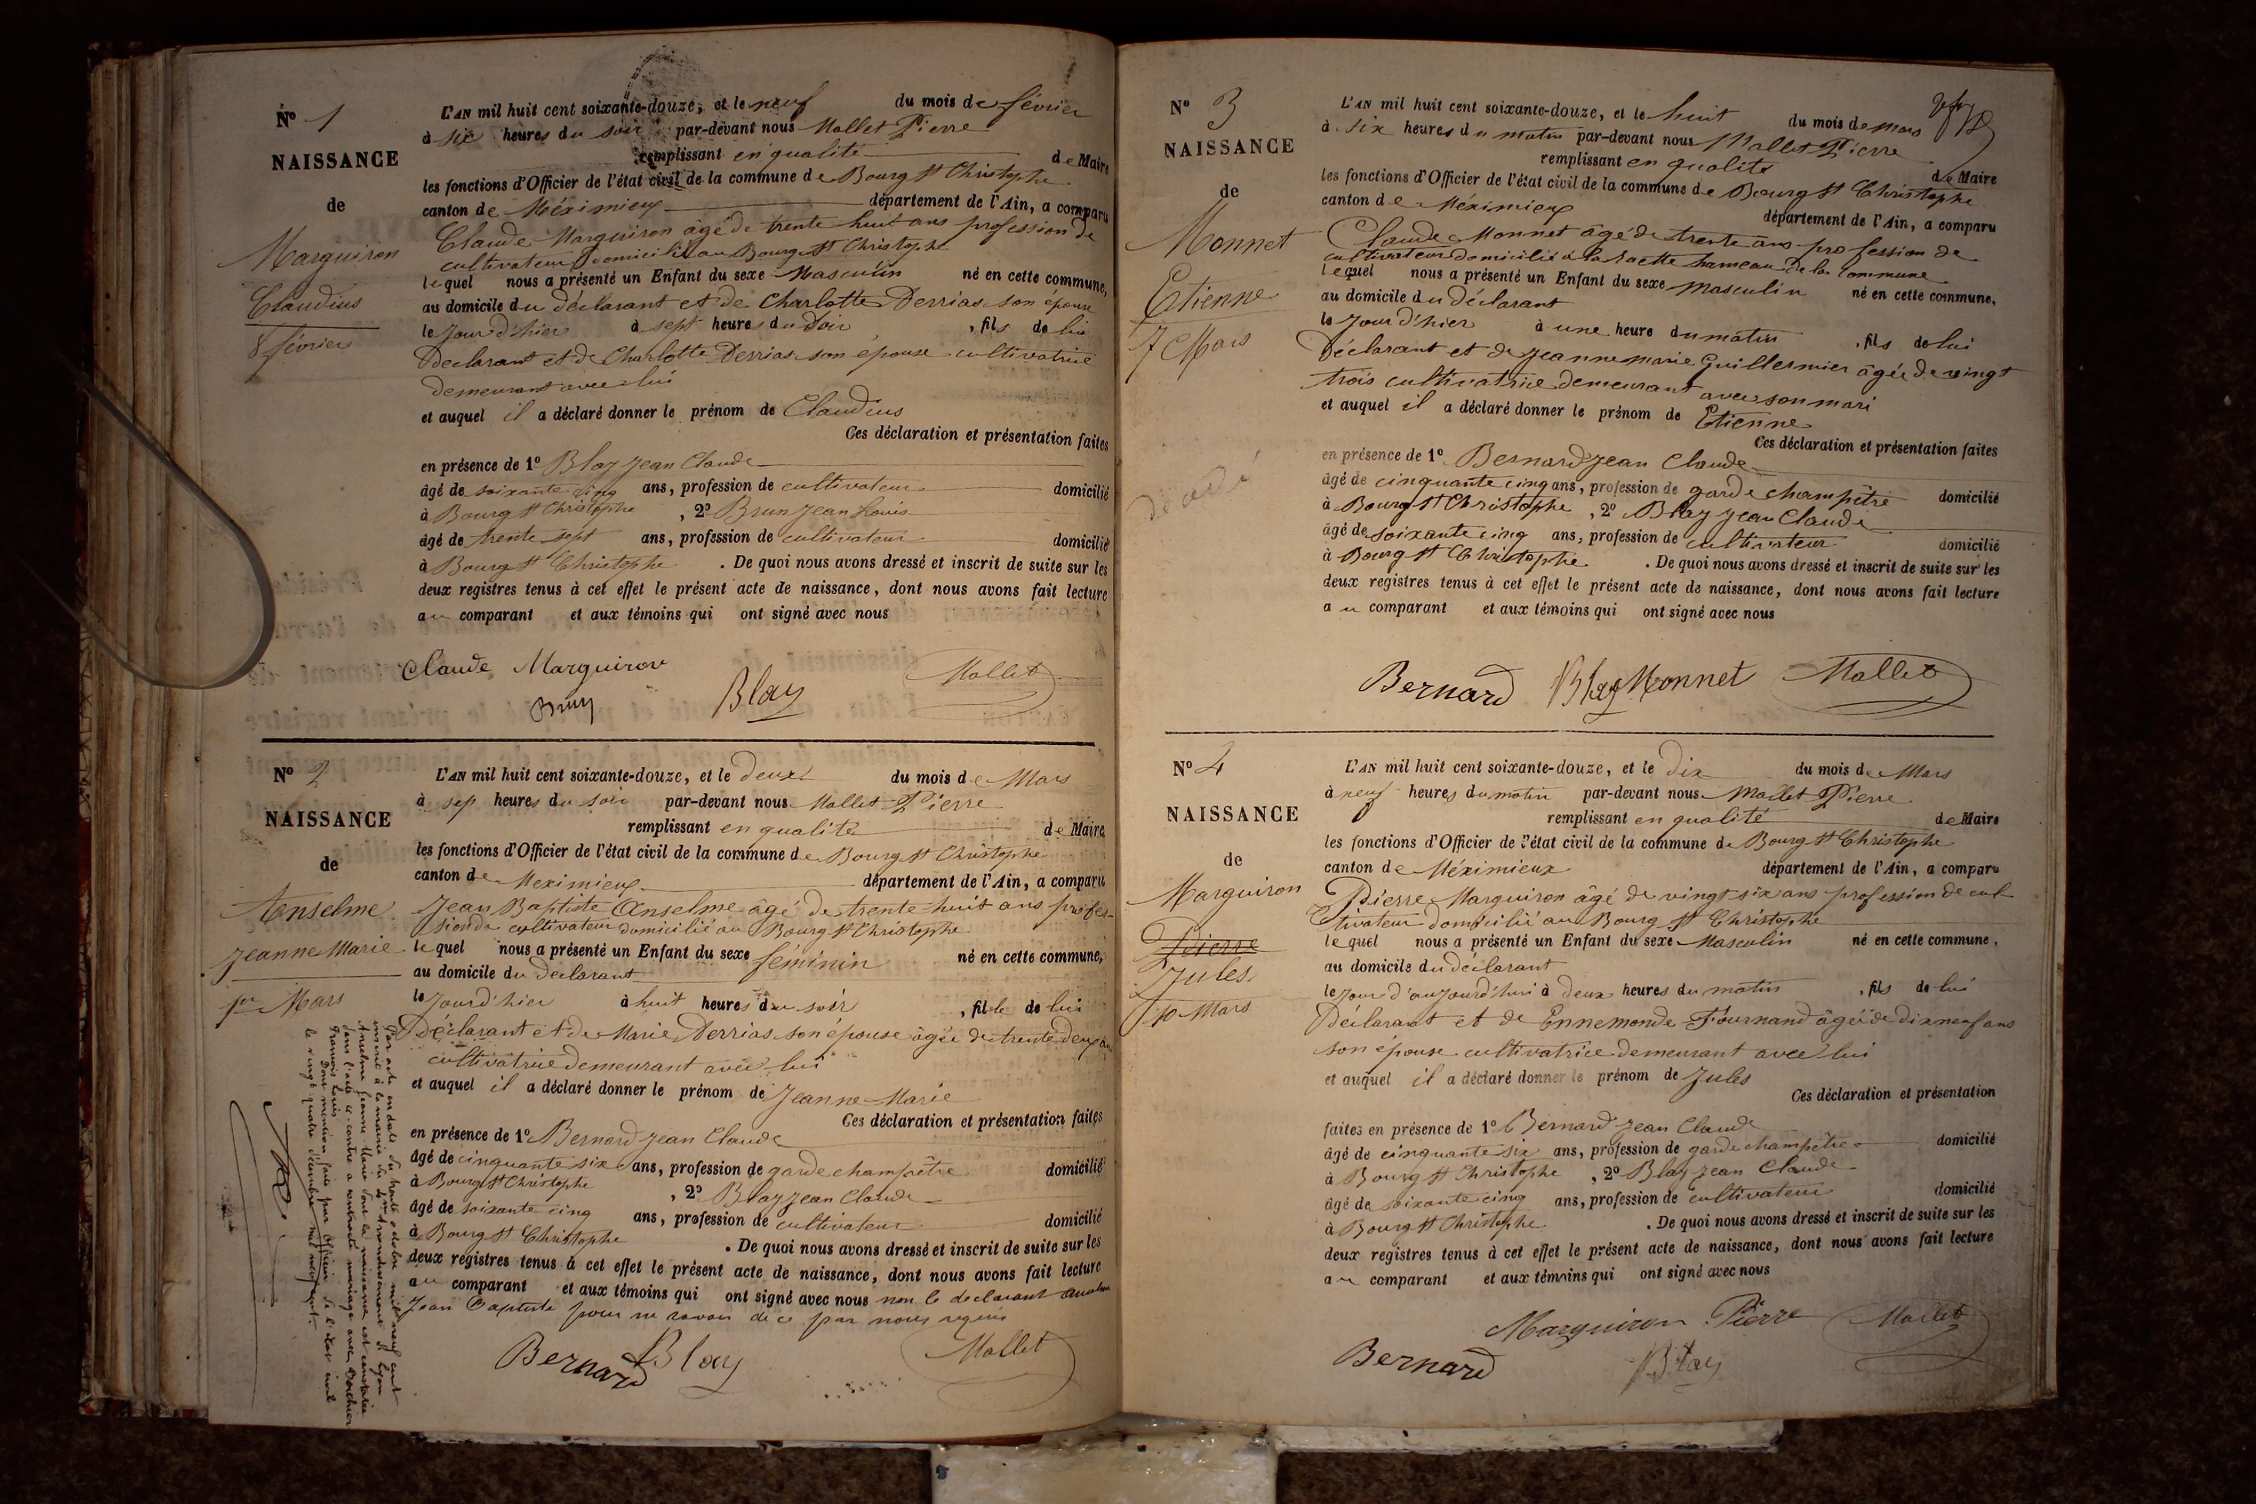 N° 1
NAISSANCE
de
Marguiron
Claudius
8 février
L'AN mil huit cent soixante-douze, et le neuf du mois de février
à six heures du soir par-devant nous Mallet Pierre
remplissant en qualité de Maire
les fonctions d'Officier de l'état civil de la commune de Bourg St Christophe
canton de Méximieux département de l'Ain, a comparu
Claude Marguiron âgé de trente huit ans profession de
cultivateur domicilié au Bourg St Christophe
lequel nous a présenté un Enfant du sexe Masculin né en cette commune,
au domicile du déclarant et de Charlotte Derrias son épouse
le jour d'hier à sept heures du soir, fils de lui
Déclarant et de Charlotte Derrias son épouse cultivatrice
demeurant avec lui
et auquel il a déclaré donner le prénom de Claudius
Ces déclaration et présentation faites
en présence de 1° Blay Jean Claude
âgé de soixante cinq ans, profession de cultivateur domicilié
à Bourg St Christophe, 2° Brun Jean Louis
âgé de trente sept ans, profession de cultivateur domicilié
à Bourg St Christophe. De quoi nous avons dressé et inscrit de suite sur les
deux registres tenus à cet effet le présent acte de naissance, dont nous avons fait lecture
au comparant et aux témoins qui ont signé avec nous
Claude Marguiron
Brun Blay Mallet
N° 2
NAISSANCE
de
Anselme
Jeanne Marie
1er Mars
L'AN mil huit cent soixante-douze, et le deux du mois de Mars
à sep heures du soir par-devant nous Mallet Pierre
remplissant en qualité de Maire
les fonctions d'Officier de l'état civil de la commune de Bourg St Christophe
canton de Meximieux département de l'Ain, a comparu
Jean Baptiste Anselme âgé de trente huit ans profes-
sion de cultivateur domicilié au Bourg St Christophe
lequel nous a présenté un Enfant du sexe féminin né en cette commune,
au domicile du déclarant
le jour d'hier à huit heures du soir, fille de lui
Déclarant et de Marie Derrias son épouse âgée de trente deux ans
cultivatrice demeurant avec lui
et auquel il a déclaré donner le prénom de Jeanne Marie
Ces déclaration et présentation faites
en présence de 1° Bernard Jean Claude
âgé de cinquante six ans, profession de garde champêtre domicilié
à Bourg St Christophe, 2° Blay Jean Claude
âgé de soixante cinq ans, profession de cultivateur domicilié
à Bourg St Christophe. De quoi nous avons dressé et inscrit de suite sur les
deux registres tenus à cet effet le présent acte de naissance, dont nous avons fait lecture
au comparant et aux témoins qui ont signé avec nous non le déclarant Anselme
Jean Baptiste pour ne savoir de ce par nous requis
Bernard Blay Mallet
Par acte en date du trente octobre mil neuf cent
inscrit à la mairie du arrondissement de Lyon
Anselme Jeanne Marie dont la naissance est constatée
dans l'acte ci-contre a contracté mariage avec
François Louis
Dont mention faite par Officier de l'état civil
le vingt quatre décembre mil neuf cent.
N° 3
NAISSANCE
de
Monnet
Etienne
7 Mars
décédé
L'AN mil huit cent soixante-douze, et le huit du mois de Mars
à six heures du matin par-devant nous Mallet Pierre
remplissant en qualité de Maire
les fonctions d'Officier de l'état civil de la commune de Bourg St Christophe
canton de Méximieux département de l'Ain, a comparu
Claude Monnet âgé de trente ans profession de
cultivateur domicilié à la hameau de la commune
lequel nous a présenté un Enfant du sexe masculin né en cette commune,
au domicile du déclarant
le jour d'hier à une heure du matin, fils de lui
Déclarant et de Jeanne marie Guillermier âgée de vingt
trois cultivatrice demeurant avec son mari
et auquel il a déclaré donner le prénom de Etienne
Ces déclaration et présentation faites
en présence de 1° Bernard Jean Claude
âgé de cinquante cinq ans, profession de garde champêtre domicilié
à Bourg St Christophe, 2° Blay Jean Claude
âgé de soixante cinq ans, profession de cultivateur domicilié
à Bourg St Christophe. De quoi nous avons dressé et inscrit de suite sur les
deux registres tenus à cet effet le présent acte de naissance, dont nous avons fait lecture
au comparant et aux témoins qui ont signé avec nous
Bernard Blay Monnet Mallet
N° 4
NAISSANCE
de
Marguiron
Pierre
Jules
10 Mars
L'AN mil huit cent soixante-douze, et le dix du mois de Mars
à neuf heures du matin par-devant nous Mallet Pierre
remplissant en qualité de Maire
les fonctions d'Officier de l'état civil de la commune de Bourg St Christophe
canton de Méximieux département de l'Ain, a comparu
Pierre Marguiron âgé de vingt six ans profession de cul
tivateur domicilié au Bourg St Christophe
lequel nous a présenté un Enfant du sexe Masculin né en cette commune,
au domicile du déclarant
le jour d'aujourd'hui à deux heures du matin, fils de lui
Déclarant et de Ennemonde Fournand âgée de dix neuf ans
son épouse cultivatrice demeurant avec lui
et auquel il a déclaré donner le prénom de Jules
Ces déclaration et présentation
faites en présence de 1° Bernard Jean Claude
âgé de cinquante six ans, profession de garde champêtre domicilié
à Bourg St Christophe, 2° Blay Jean Claude
âgé de soixante cinq ans, profession de cultivateur domicilié
à Bourg St Christophe. De quoi nous avons dressé et inscrit de suite sur les
deux registres tenus à cet effet le présent acte de naissance, dont nous avons fait lecture
au comparant et aux témoins qui ont signé avec nous
Marguiron Pierre Mallet
Bernard Blay